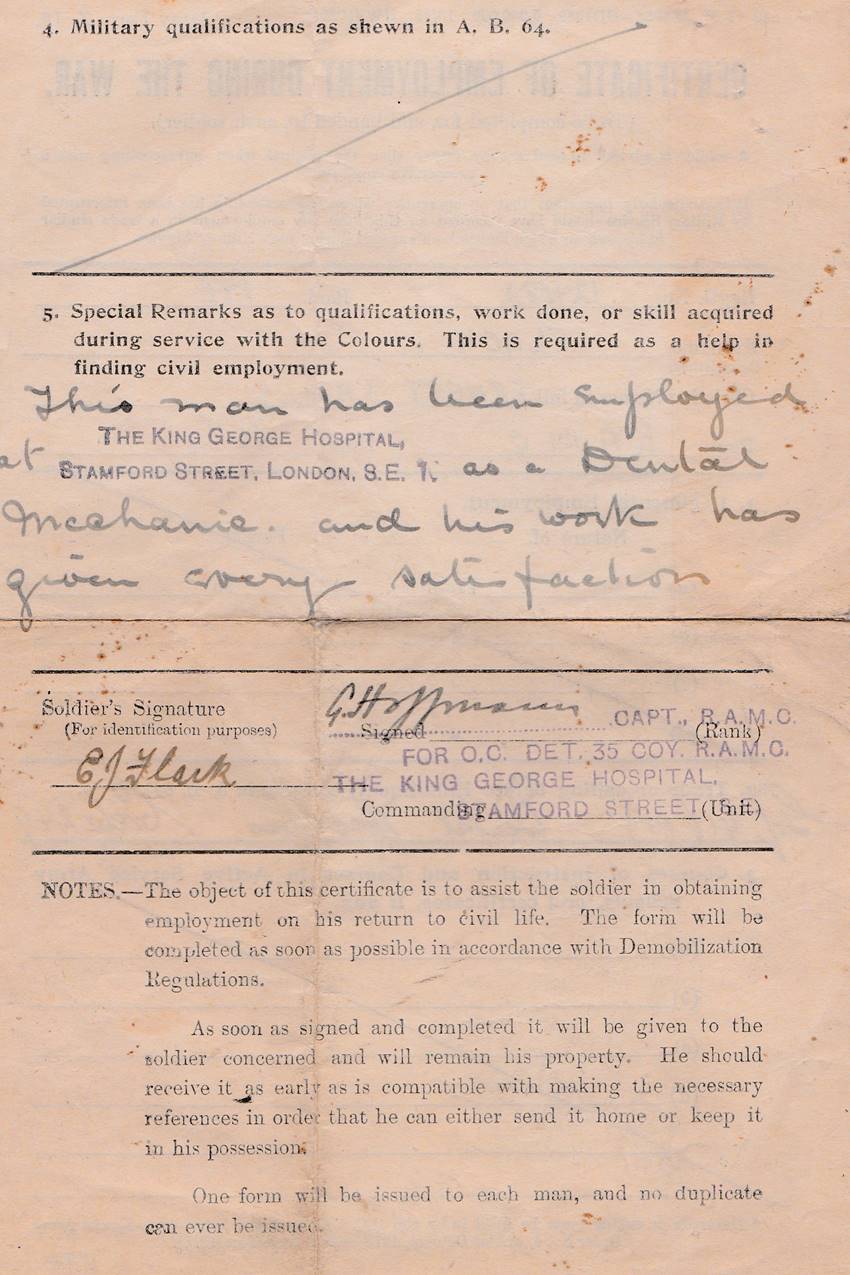 4. Military qualifications as shewn in A. B. 64.
5. Special Remarks as to qualifications, work done, or skill acquired
during service with the Colours. This is required as a help in
finding civil employment.
This man has been employed
at THE KING GEORGE HOSPITAL,
STAMFORD STREET, LONDON, S.E. 1. as a Dental
Mechanic. and his work has
given every satisfaction
Soldier's Signature
(For identification purposes)
E J Flack
G. Hoffmann
Signed CAPT., R.A.M.C. (Rank)
FOR O.C. DET. 35 COY. R.A.M.C.
THE KING GEORGE HOSPITAL,
Commanding STAMFORD STREET, S.E. (Unit)
NOTES.—The object of this certificate is to assist the soldier in obtaining
employment on his return to civil life. The form will be
completed as soon as possible in accordance with Demobilization
Regulations.
As soon as signed and completed it will be given to the
soldier concerned and will remain his property. He should
receive it as early as is compatible with making the necessary
references in order that he can either send it home or keep it
in his possession.
One form will be issued to each man, and no duplicate
can ever be issued.